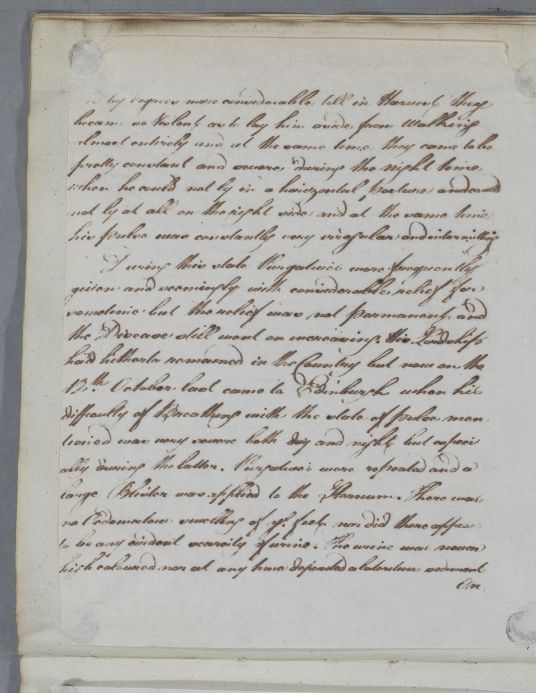 by degrees more considerable, till in Harvest they
became so Violent as to lay him aside from Walking
almost entirely and at the same time they came to be
pretty constant and severe during the night time,
when he could not ly in a horizontal Posture, and could
not ly at all on the right side, and at the same time
his pulse was constantly very irregular and intermitting
During this state Purgatives were frequently
given and seemingly with considerable relief for
sometime but the relief was not permanent, and
the Disease still went on increasing. His Lordship
had hitherto remained in the Country but now on the
13th October last came to Edinburgh when his
difficulty of Breathing with the state of pulse men
tioned was very severe both day and night but especi
ally during the latter. Purgatives were repeated and a
large Blister was applied to the Sternum. There was
no Oedematous swelling of ye. feet, nor did there appear
to be any evident scarcity of urine. The urine was never
high coloured nor at any time deposited a lateritious sediment
On